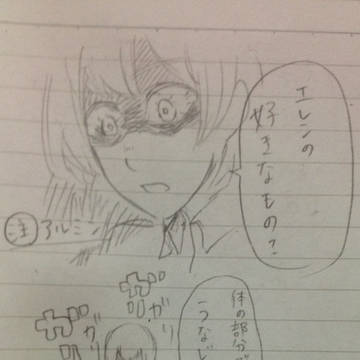 エレンの
好きなもの？
注 アルミン
体の部分で
ガリ
ガリ